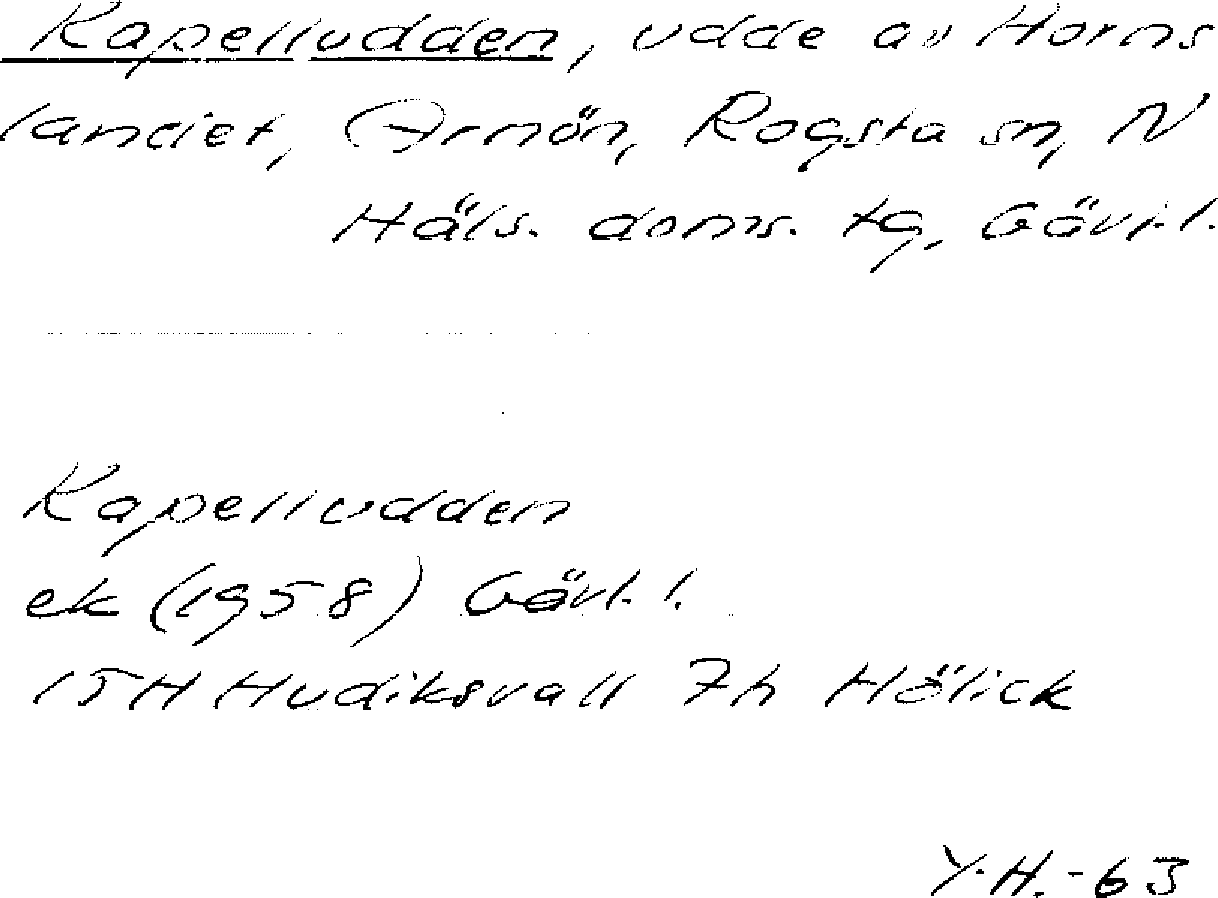 Kapelludden, udde av Horns
landet, Arnön, Rogsta sn, N
Häls. doms. tg, Gävl.l.
Kapelludden
ek (1958) Gävl. l.
15H Hudiksvall 7h Hölick
Y.H.-63